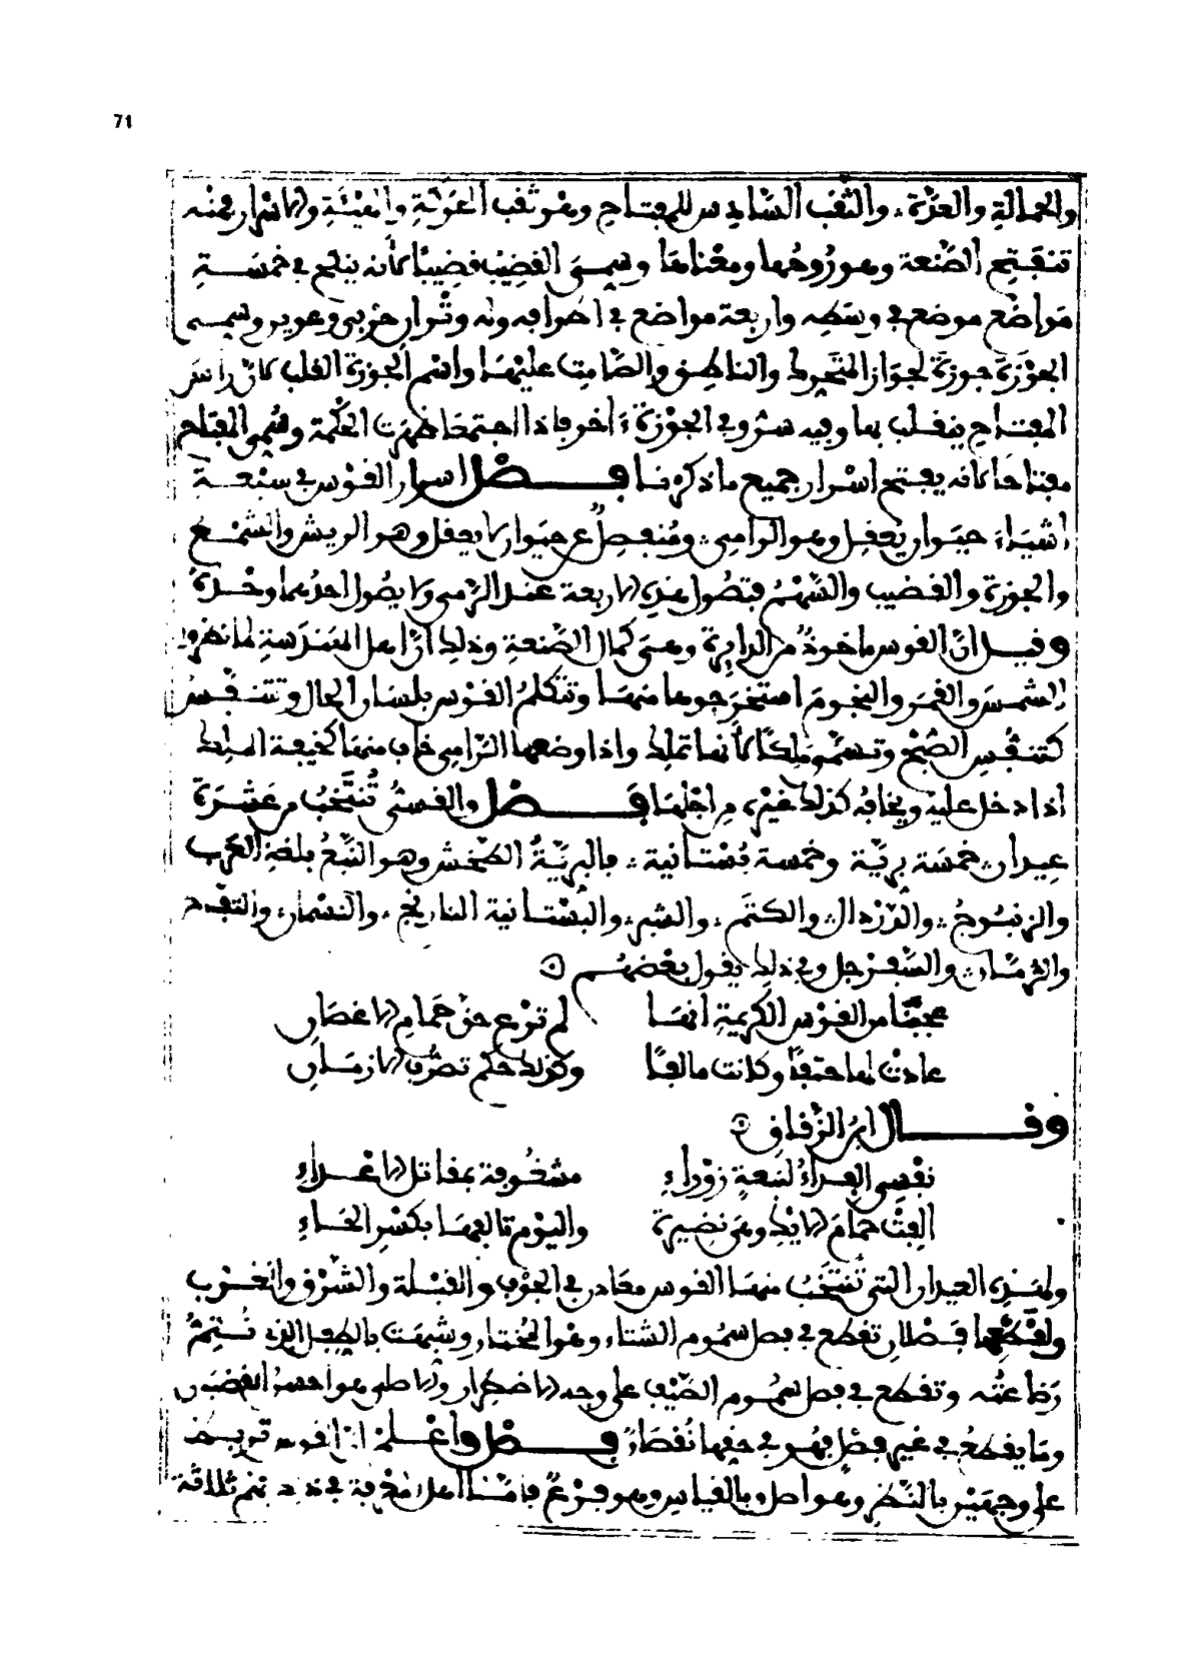 71
والجمالة والعزة، والثقب السادس للمفتاح وهو ثقب العزية والهيئة والاسرار فمنه
تنفتح الصنعة وهو روحها ومعناها وسمي القضيب قضيبا لانه ينفع في خمسة
مواضع موضع في وسطه واربعة مواضع في
الجوزة جوزة لجواز المتحرك والناطق والصامت عليها واسم الجوزة القلب لان راس
المفتاح ينقلب بما وفيه سر وفي الجوزة ءاخر فاذا اجتمعا ظهرت الحكمة وسمي المفتاح
مفتاحا لانه يفتح اسرار جميع ما ذكرنا فصل اسرار القوس في سبعة
أشياء حيوان يعقل وهو الرامي، ومنفصل عن حيوان لا يعقل وهو الريش والشمع
والجوزة والقضيب والسهم فتصول هذه الاربعة عند الرمي ولا يصول احدهما وحده
وقيل ان القوس ماخوذ من الدايرة وهي كمال الصنعة وذلك ان اهل الهندسة لما نظروا
الشمس والقمر والنجوم استخرجوها منها وتتكلم القوس بلسان الحال وتتنفس
كتنفس الصبح وتسمى ملكا لانها تملك واذا وضعها الرامي خاف منها كخيفة الملك
اذا دخل عليه ويخافه كذلك غيره من اجلها فصل والقسي تنتخب من عشرة
عيدان، خمسة برية وخمسة بستانية، فالبرية الطخش وهو النبع بلغة العرب
والزنبوج، والدردال، والكتم، والشبر، والبستانية النارنج، والنشمان، والتفدم
والرمان، والسفرجل وفي ذلك يقول بعضهم
عجبا من القوس الكريمة انها لم ترع حق حمام الاغصان
عادت لها حتفا وكانت مالفا وكذلك حكم تصرف الازمان
وقال ابن الزقاق
نفسي الفداء لنبعة زوراء مشغوفة بمقاتل الاعداء
الفت حمام الايك وهي نضيرة واليوم تالفها بكسر الحاء
ولهذه العيدان التي تنتخب منها القوس معادن في الجوف والقبلة والشرق والغرب
ولقطعها فصلان تقطع في فصل سموم الشتاء وهو المختار وشبهت بالطفل الذي تستتم
رضاعته وتقطع في فصل سموم الصيف على وجه الاضطرار والباطل هو احسن الفصلين
وما يقطع في غير فصل فهو في حقها نقصان فصل واعلم ان القوس توصف
على وجهين بالنظر وهو اصل وبالقياس وهو فرع فامّا اهل المعرفة في ثلاثة